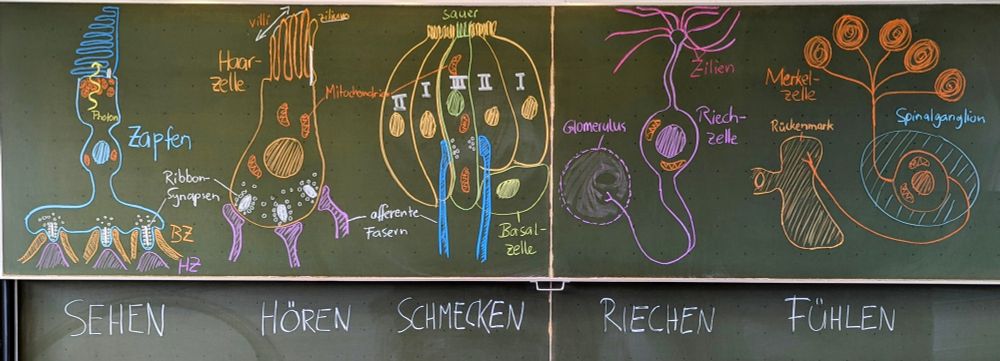 villi
zilium
Haar-
zelle
Photon
Zapfen
Ribbon-
Synapsen
BZ
HZ
sauer
Mitochondrien
II
I
III
II
I
afferente
Fasern
Basal-
zelle
Zilien
Glomerulus
Riech-
zelle
Merkel-
zelle
Rückenmark
Spinalganglion
SEHEN
HÖREN
SCHMECKEN
RIECHEN
FÜHLEN